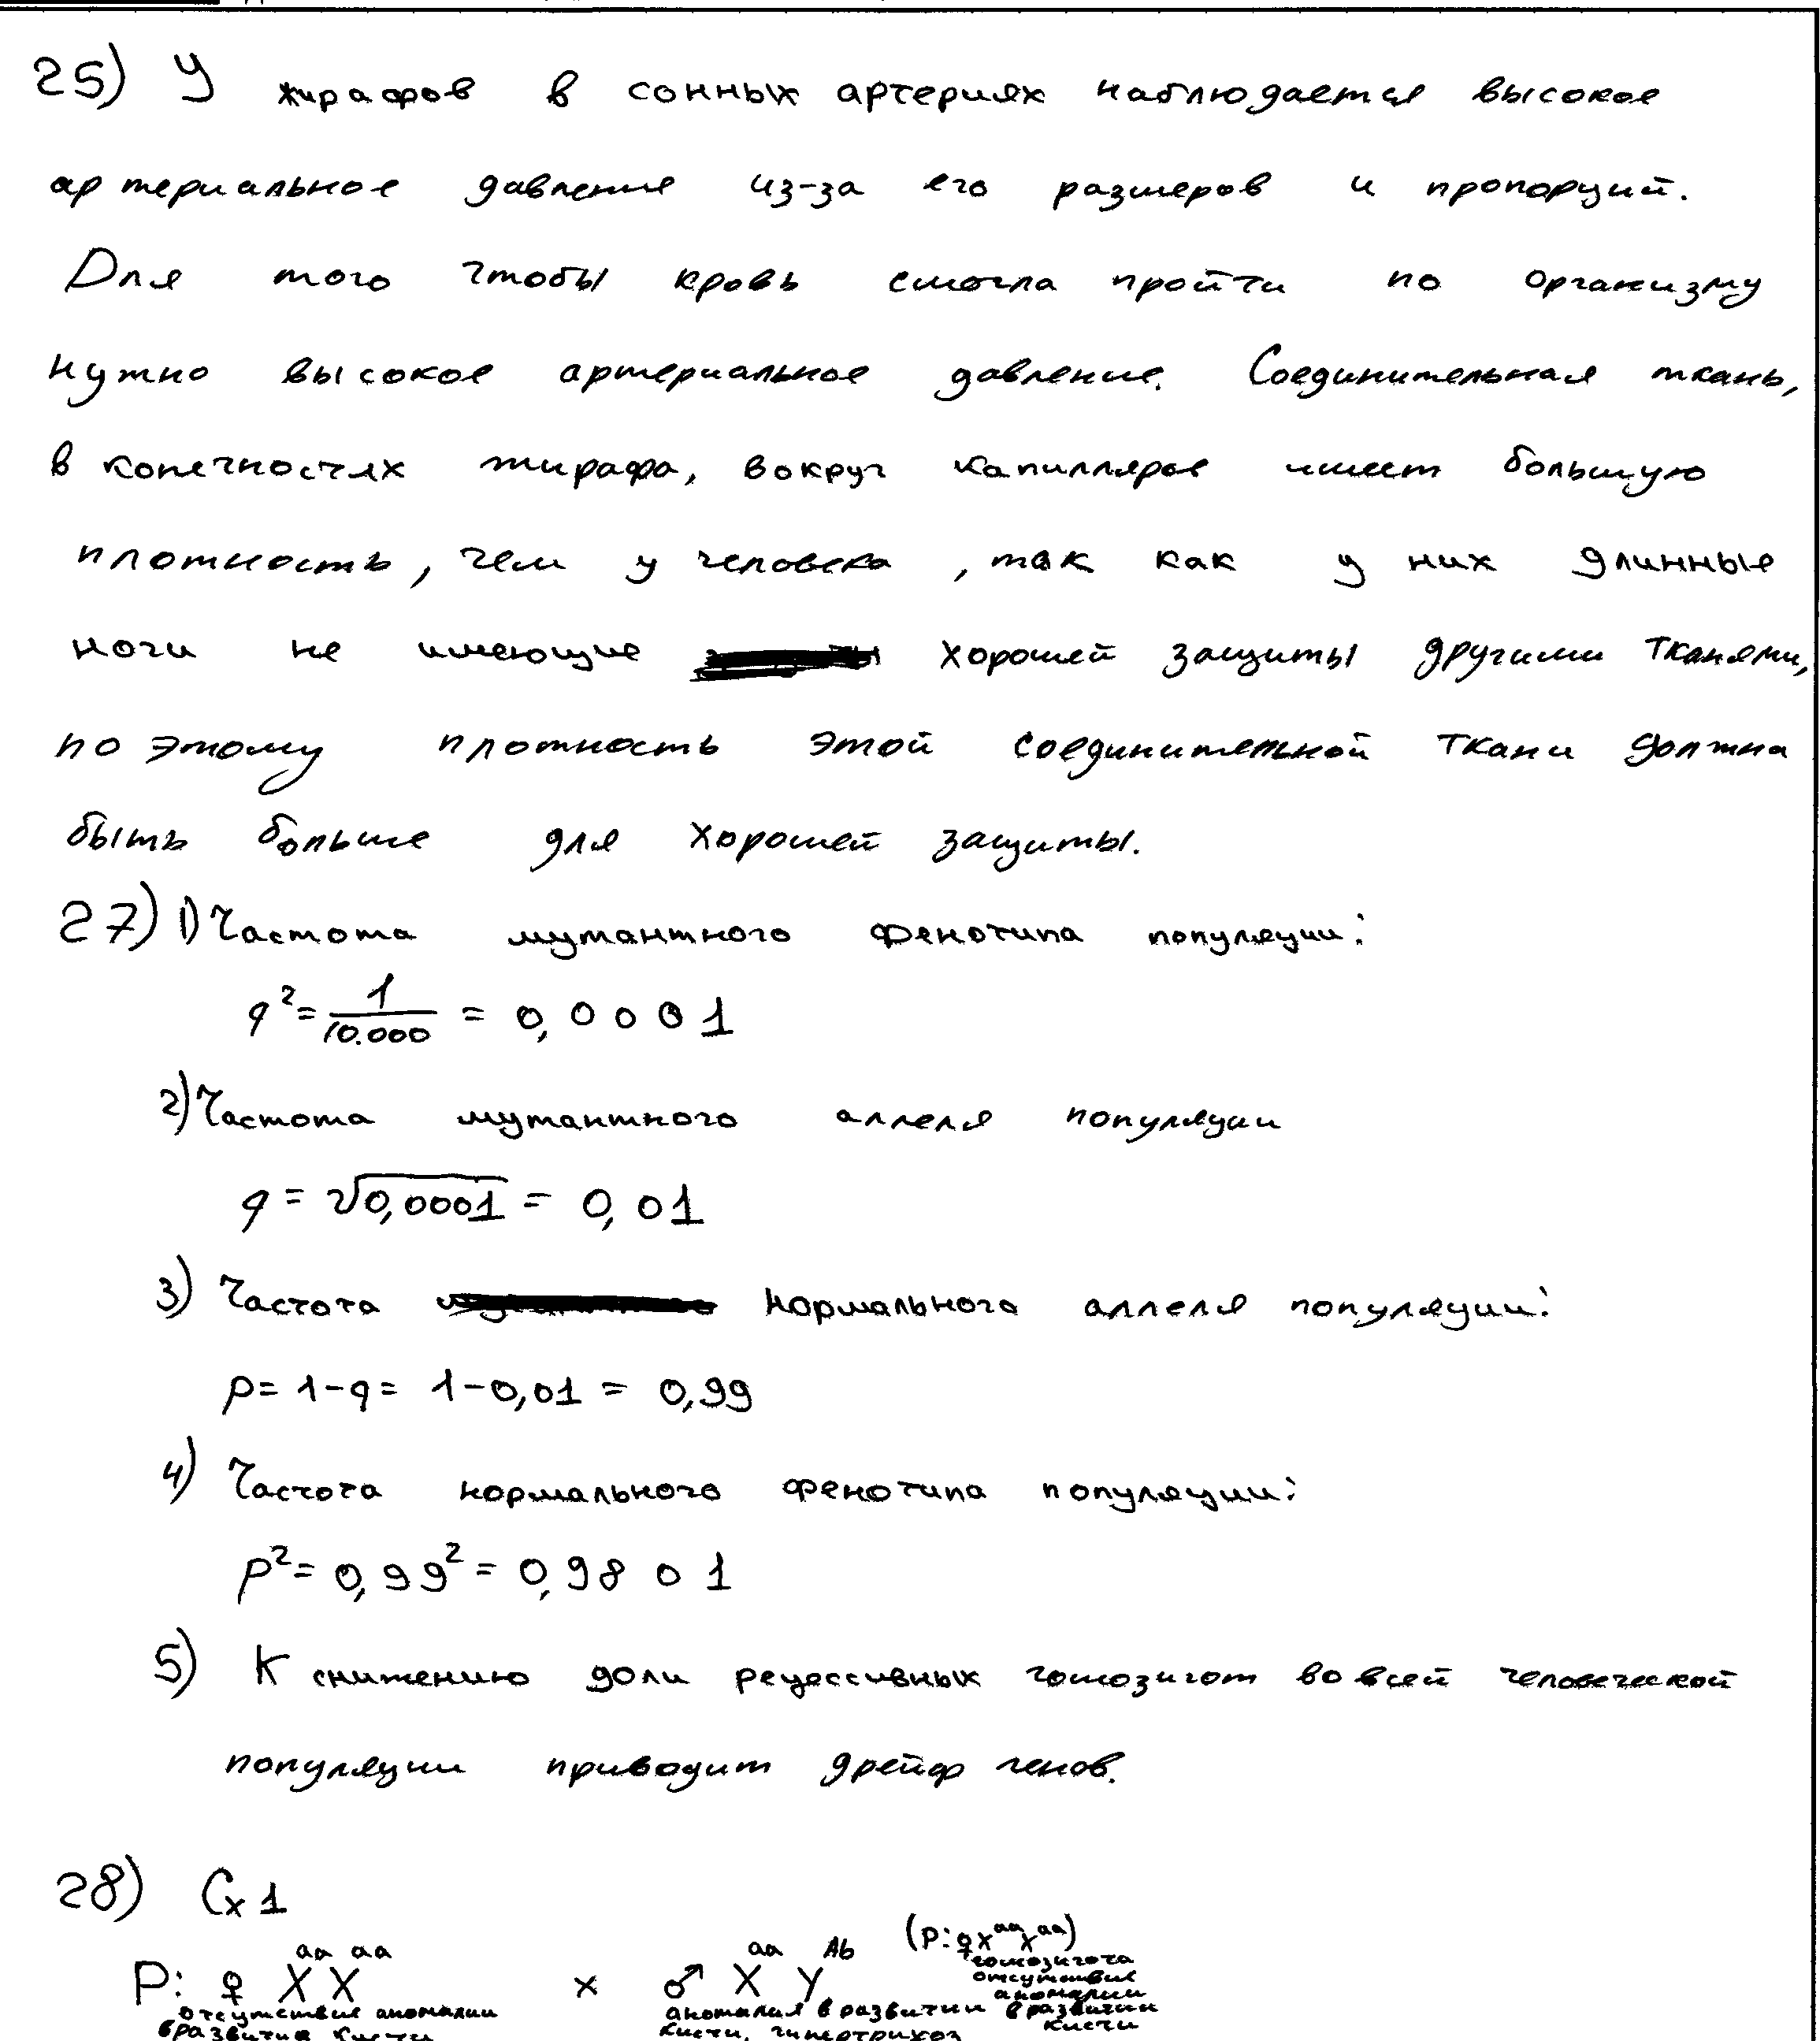 25) У жирафов в сонных артериях наблюдается высокое
артериальное давление из-за его размеров и пропорций.
Для того чтобы кровь смогла пройти по организму
нужно высокое артериальное давление. Соединительная ткань,
в конечностях жирафа, вокруг капилляров имеет большую
плотность, чем у человека, так как у них длинные
ноги не имеющие хорошей защиты другими тканями,
по этому плотность этой соединительной ткани должна
быть больше для хорошей защиты.
27) 1) Частота мутантного фенотипа популяции:
q² = 1/10.000 = 0,0001
2) Частота мутантного аллеля популяции
q = √0,0001 = 0,01
3) Частота нормального аллеля популяции:
p = 1-q = 1-0,01 = 0,99
4) Частота нормального фенотипа популяции:
p² = 0,99² = 0,9801
5) К снижению доли рецессивных гомозигот во всей человеческой
популяции приводит дрейф генов.
28) Сх 1
P: ♀ X^aa X^aa × ♂ X^aa Y^Ab (P: ♀ X^aa X^aa)
гомозигота
отсутствие
аномалии
в развитии
кисти
отсутствие аномалии
в развитии кисти
аномалия в развитии
кисти, гипертрихоз